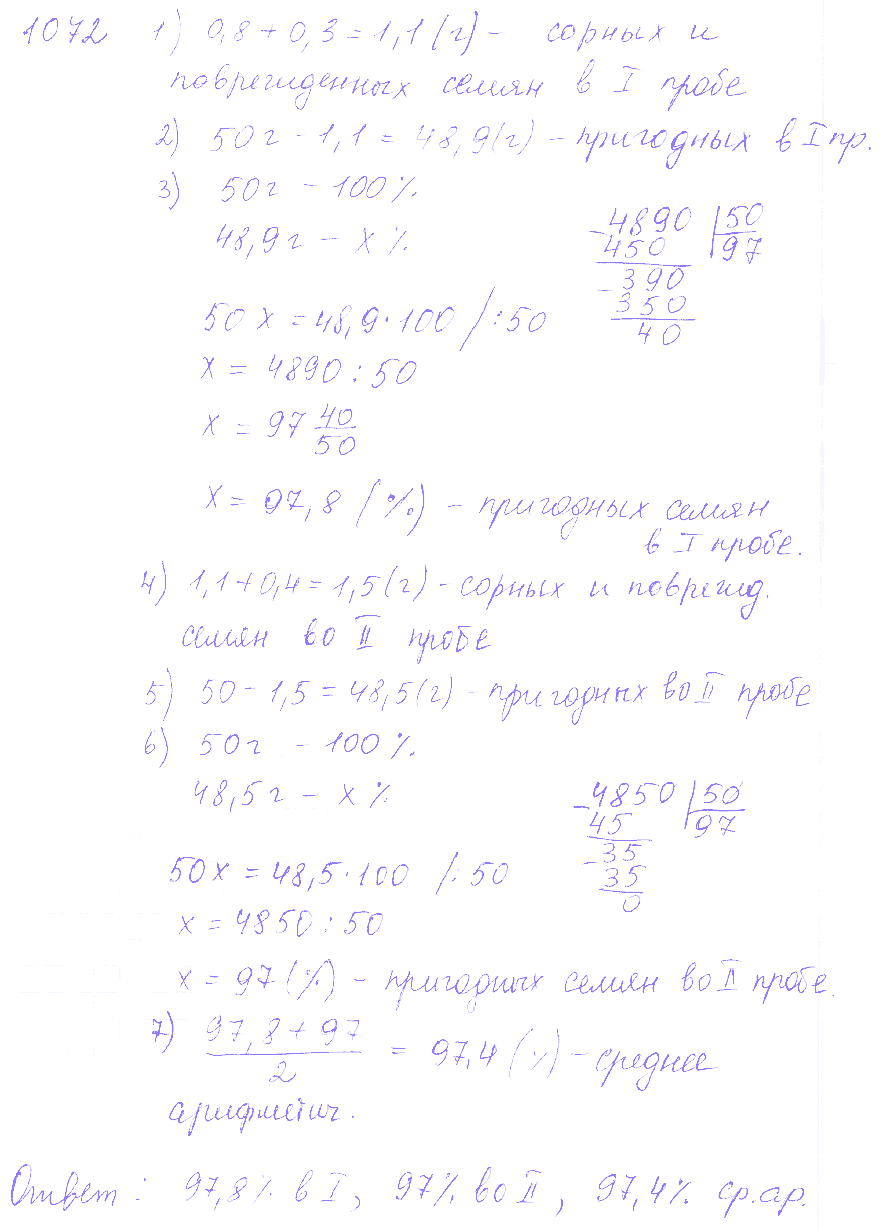 1072 1) 0,8 + 0,3 = 1,1 (г) - сорных и
поврежденных семян в I пробе
2) 50 г - 1,1 = 48,9 (г) - пригодных в I пр.
3) 50 г - 100 %
48,9 г - х %
50 х = 48,9 · 100 / : 50
х = 4890 : 50
х = 97 40/50
- 4890 | 50
450 97
- 390
350
40
х = 97,8 (%) - пригодных семян
в I пробе.
4) 1,1 + 0,4 = 1,5 (г) - сорных и поврежд.
семян во II пробе
5) 50 - 1,5 = 48,5 (г) - пригодных во II пробе
6) 50 г - 100 %
48,5 г - х %
50 х = 48,5 · 100 / : 50
х = 4850 : 50
- 4850 | 50
45 97
- 35
35
0
х = 97 (%) - пригодных семян во II пробе.
7) (97,8 + 97)/2 = 97,4 (%) - среднее
арифметич.
Ответ : 97,8 % в I, 97 % во II, 97,4 % ср. ар.